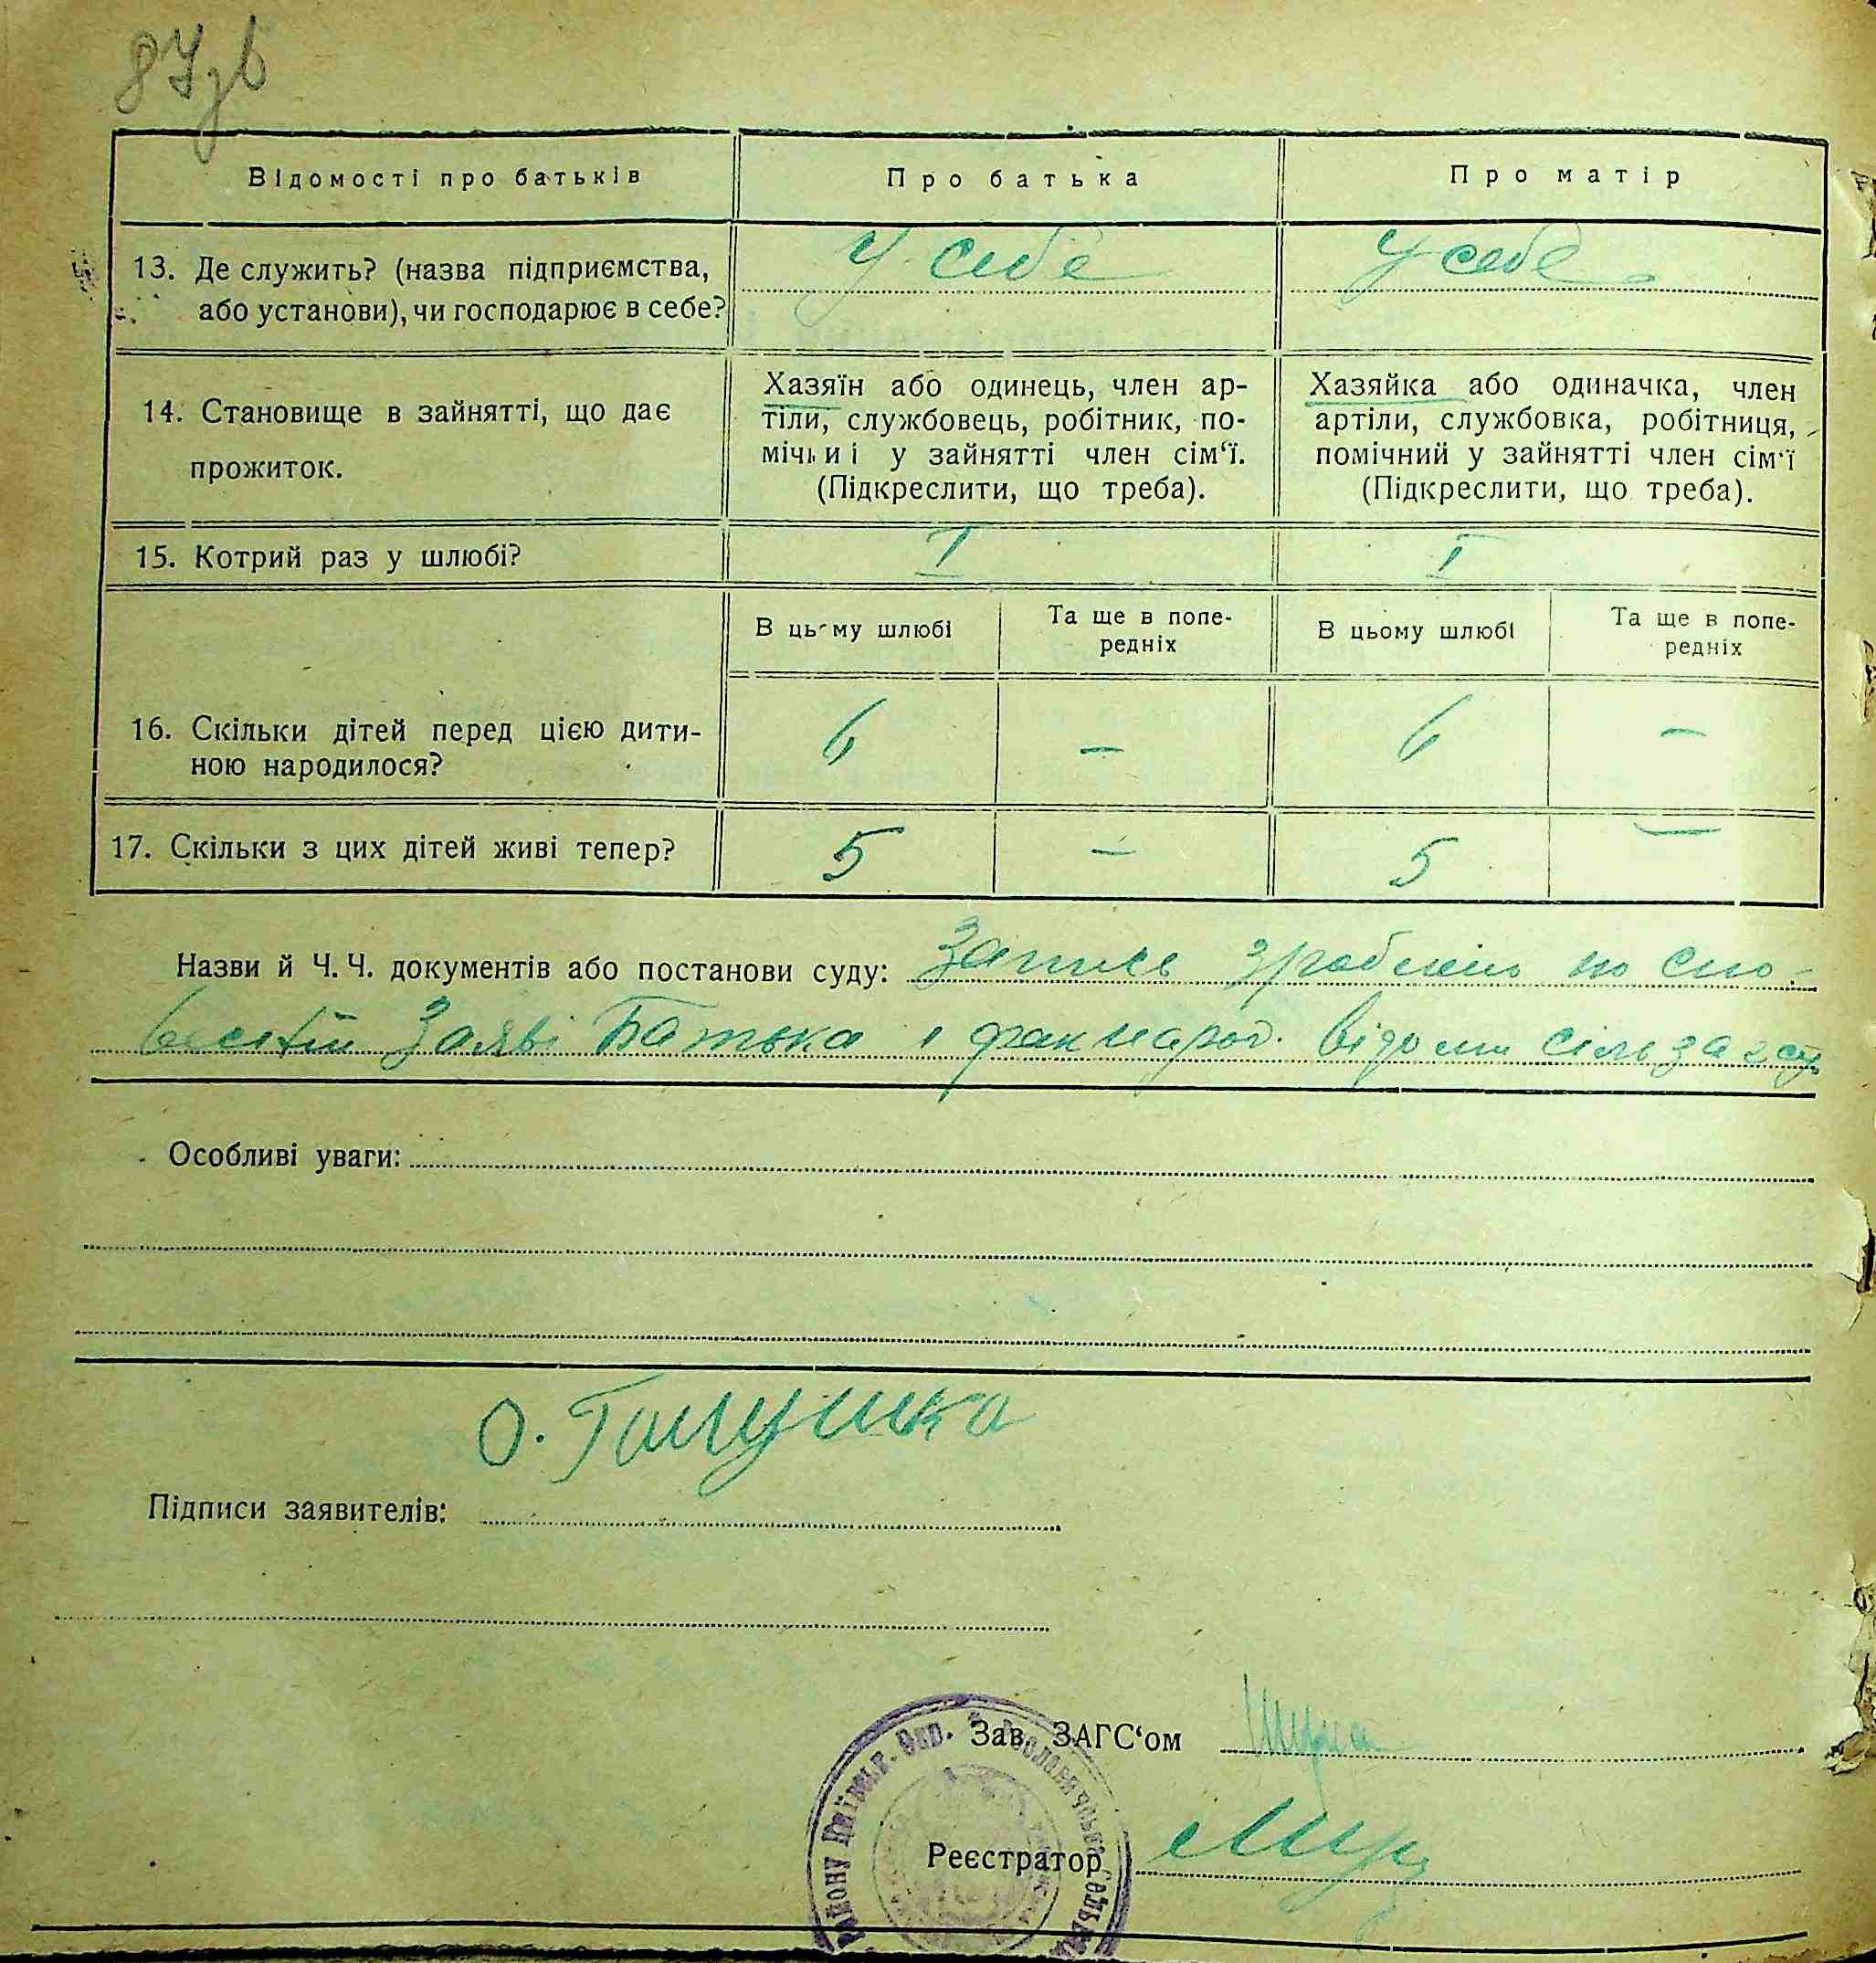 87зв
Відомості про батьків
Про батька
Про матір
13. Де служить? (назва підприємства,
або установи), чи господарює в себе?
У себе
У себе
14. Становище в зайнятті, що дає
прожиток.
Хазяїн або одинець, член ар-
тіли, службовець, робітник, по-
мічниі у зайнятті член сім‘ї.
(Підкреслити, що треба).
Хазяйка або одиначка, член
артіли, службовка, робітниця,
помічний у зайнятті член сім‘ї
(Підкреслити, що треба).
15. Котрий раз у шлюбі?
I
I
В цьому шлюбі
Та ще в попе-
редніх
В цьому шлюбі
Та ще в попе-
редніх
16. Скільки дітей перед цією дити-
ною народилося?
6
—
6
—
17. Скільки з цих дітей живі тепер?
5
—
5
—
Назви й Ч. Ч. документів або постанови суду: Запись зроблено по сло-
весній Заяві Батька і факнарод. Відоми сільзагсу
Особливі уваги:
О. Галушка
Підписи заявителів:
Зав. ЗАГС‘ом
Реєстратор
Району Київськ. Окр.